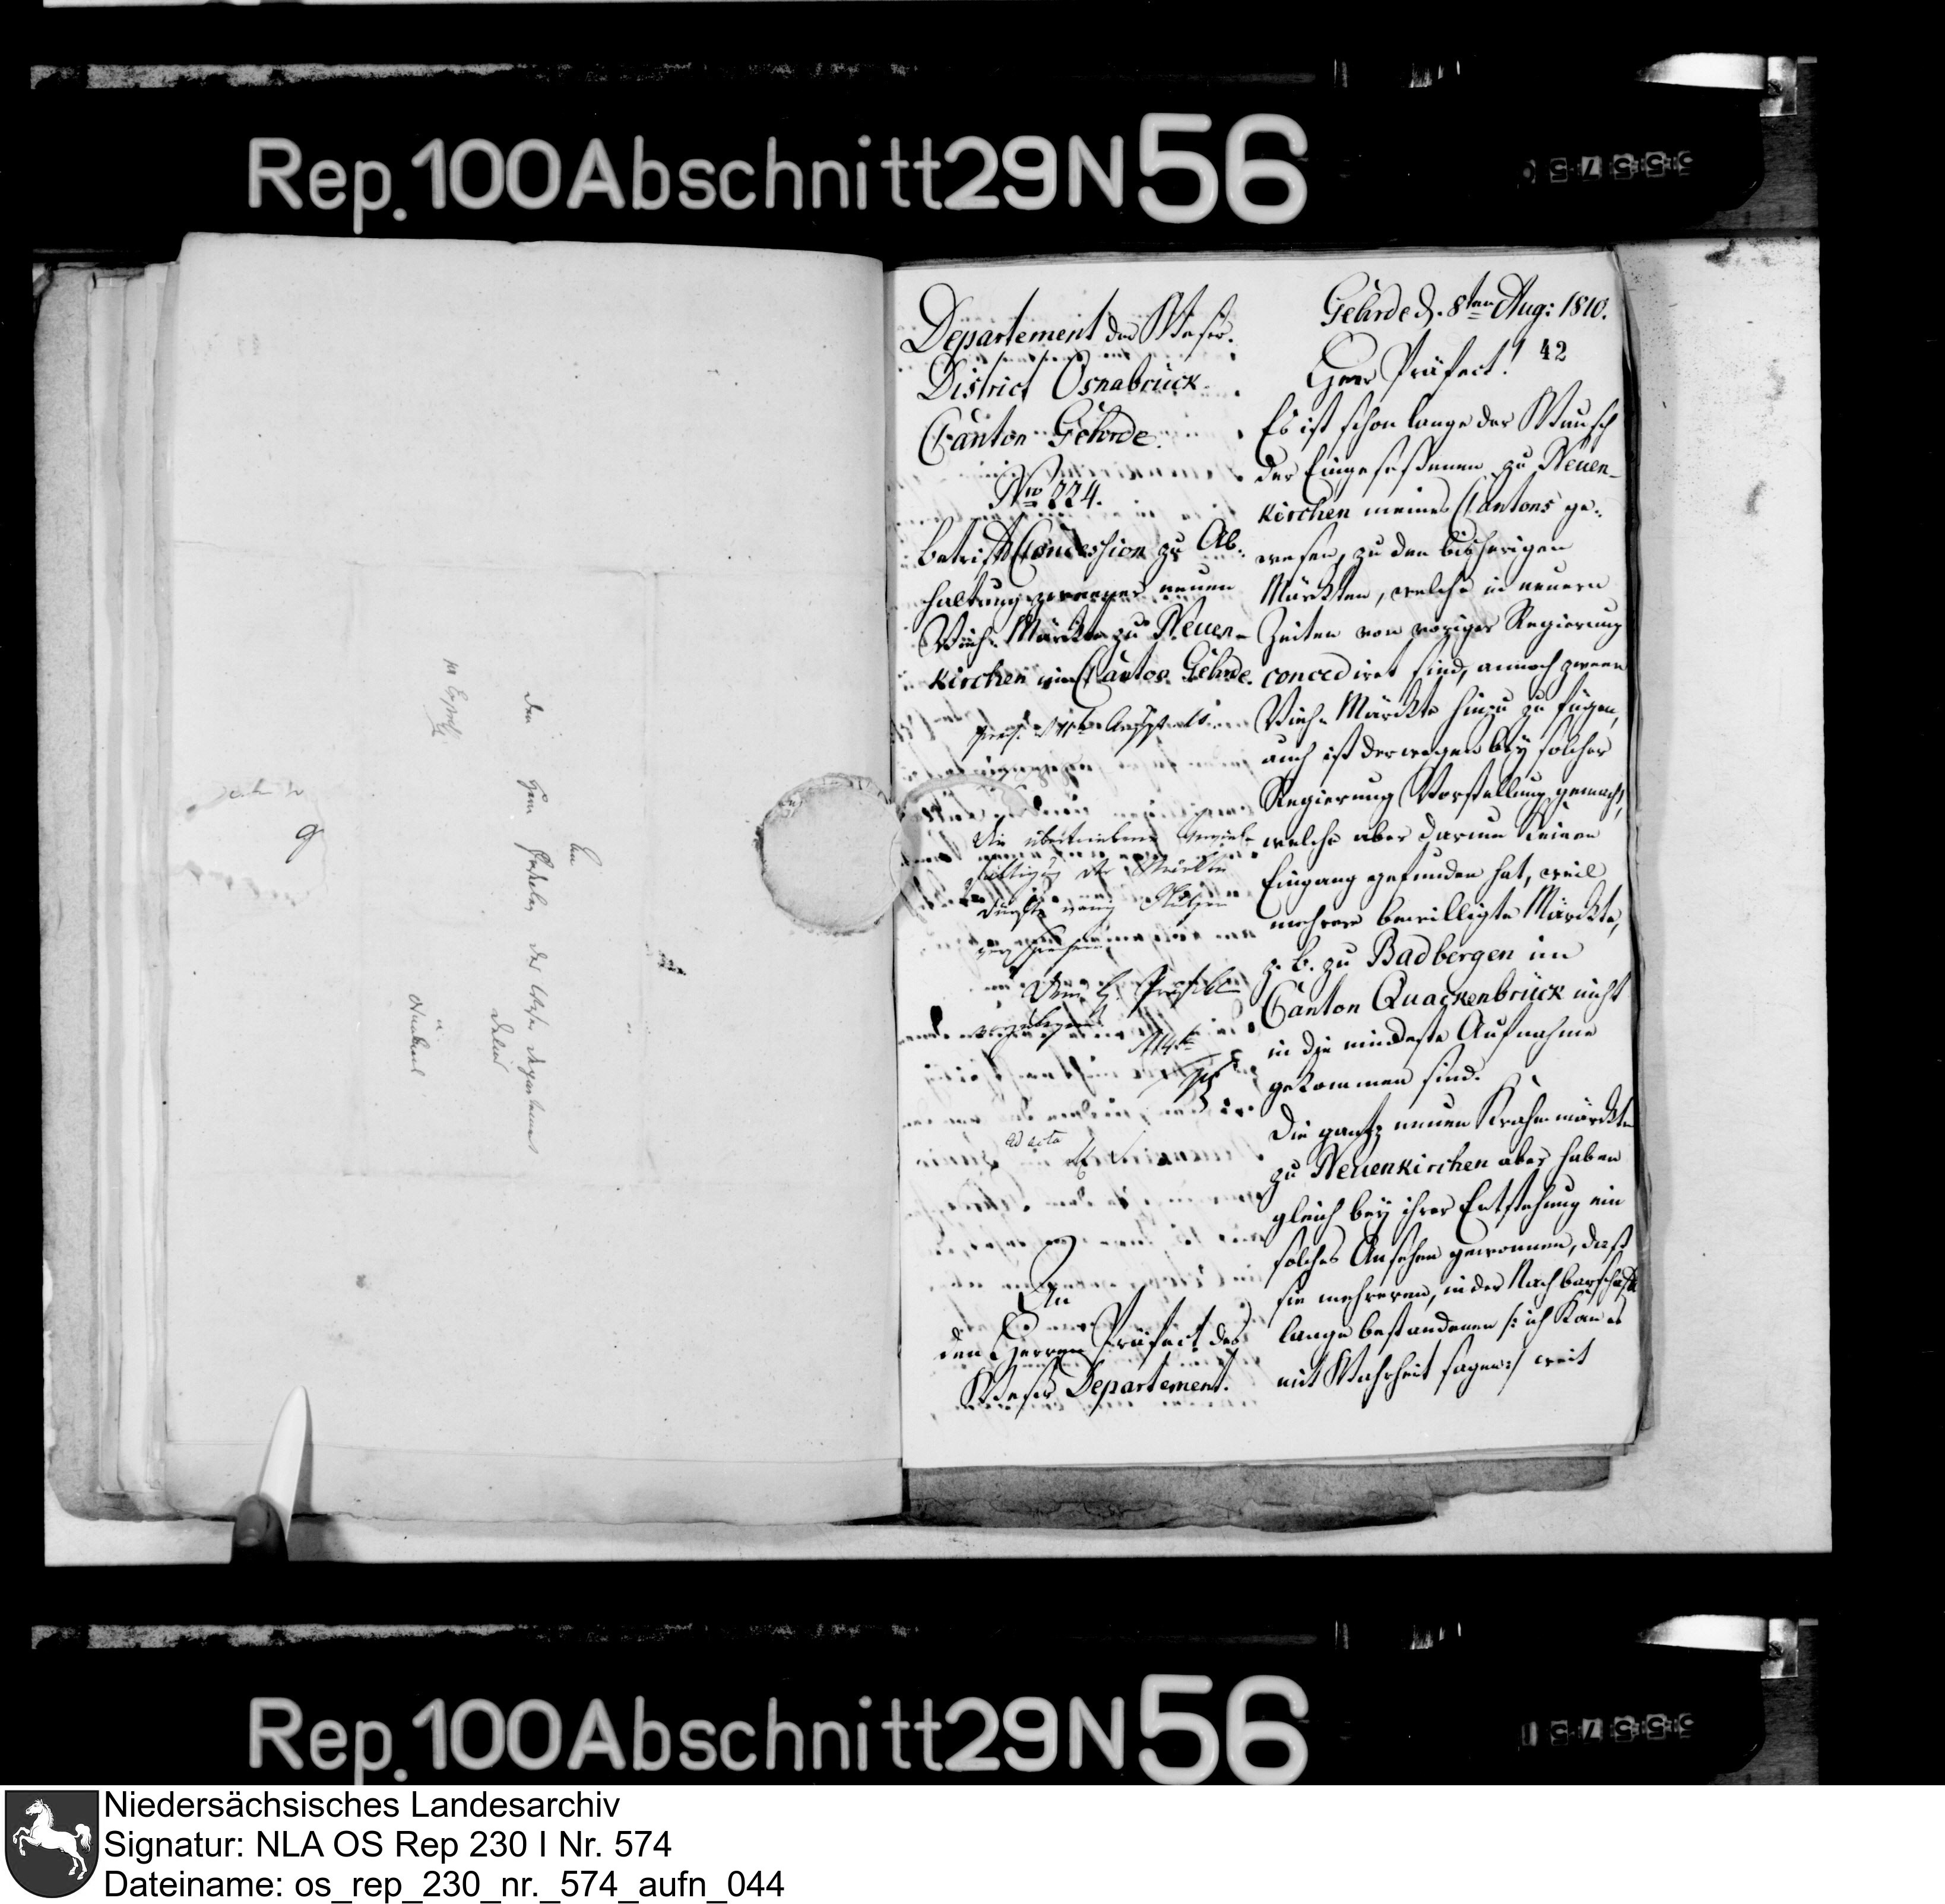 Rep. 100 Abschnitt 29 N 56
An
den Herrn Präfecten des Weser Departements
Departement der Weser.
District Osnabrück.
Canton Gehrde.
Nro 224.
betrift Concession zu Ab-
haltung zweeyer neuen
Vieh-Märkte zu Neuen-
kirchen im Canton Gehrde.
Die übertriebene Verviel-
fältigung der Märkte
dürfte wenig Nutzen
versprechen
Dem H. Präfect
vorzulegen.
ad acta
An
den Herren Präfect des
Weser Departement.
Gehrde d. 8ten Aug: 1810.
42
Herr Präfect!
Es ist schon lange der Wunsch
der Eingesessenen zu Neuen-
kirchen meines Cantons ge-
wesen, zu den bisherigen
Märkten, welche in neuern
Zeiten von voriger Regierung
concediret sind, annoch zween
Vieh-Märckte hinzu zu fügen,
auch ist derwegen bey solcher
Regierung Vorstellung gemacht,
welche aber darum keinen
Eingang gefunden hat, weil
mehrere bewilligte Märckte,
z. b. zu Badbergen im
Canton Quackenbrück nicht
in die mindeste Aufnahme
gekommen sind.
Die gantz neuen Krahmmärckte
zu Neuenkirchen aber haben
gleich bey ihrer Entstehung ein
solches Ansehen gewonnen, daß
sie mehreren, in der Nachbarschaft
lange bestandenen /: ich kan es
mit Wahrheit sagen :/ weit
Rep. 100 Abschnitt 29 N 56
Niedersächsisches Landesarchiv
Signatur: NLA OS Rep 230 I Nr. 574
Dateiname: os_rep_230_nr._574_aufn_044